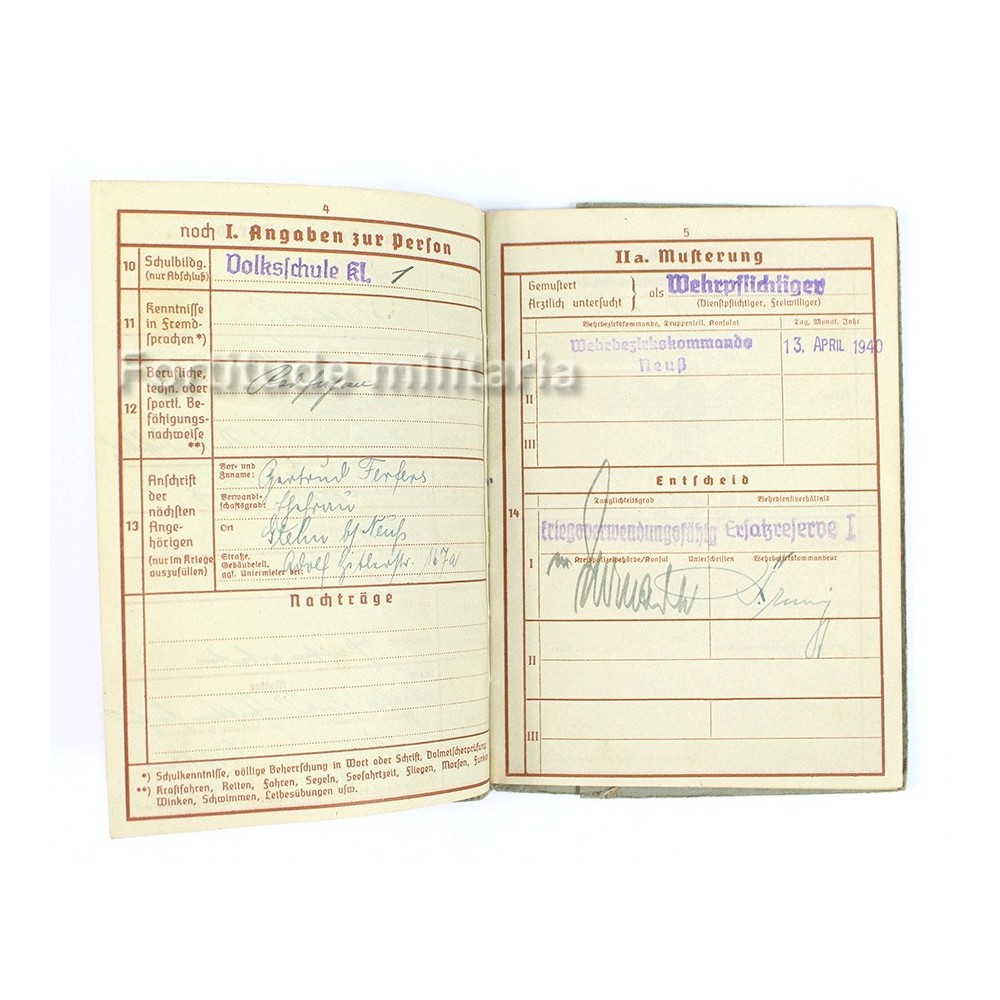 4
noch I. Angaben zur Person
10 Schulbildg. (nur Abschluß)
Volksschule Kl. 1
11 Kenntnisse in Fremd-
sprachen*)
Fortitude militaria
12 Berufliche,
techn. oder
sportl. Be-
fähigungs-
nachweise
**)
13 Anschrift
der
nächsten
Ange-
hörigen
(nur im Kriege
auszufüllen)
Vor- und
Zuname: Gertrud Ferfers
Verwandt-
schaftsgrad: Ehefrau
Ort
Stelm b/ Neuß
Straße,
Gebäudeteil,
ggf. Untermieter bei: Adolf Hitlerstr. 167a
Nachträge
*) Schulkenntnisse, völlige Beherrschung in Wort oder Schrift, Dolmetscherprüfung
**) Kraftfahren, Reiten, Fahren, Segeln, Seefahrtzeit, Fliegen, Morsen, Funken
Winken, Schwimmen, Leibesübungen usw.
5
IIa. Musterung
Gemustert
Ärztlich untersucht } als Wehrpflichtiger
(Dienstpflichtiger, Freiwilliger)
Wehrbezirkskommando, Truppenteil, Konsulat Tag, Monat, Jahr
I Wehrbezirkskommando 13. APRIL 1940
Neuß
II
III
Entscheid
14 Tauglichkeitsgrad Wehrdienstverhältnis
Kriegsverwendungsfähig Ersatzreserve I
I Kreispolizeibehörde/Konsul Unterschriften Wehrbezirkskommandeur
II
III